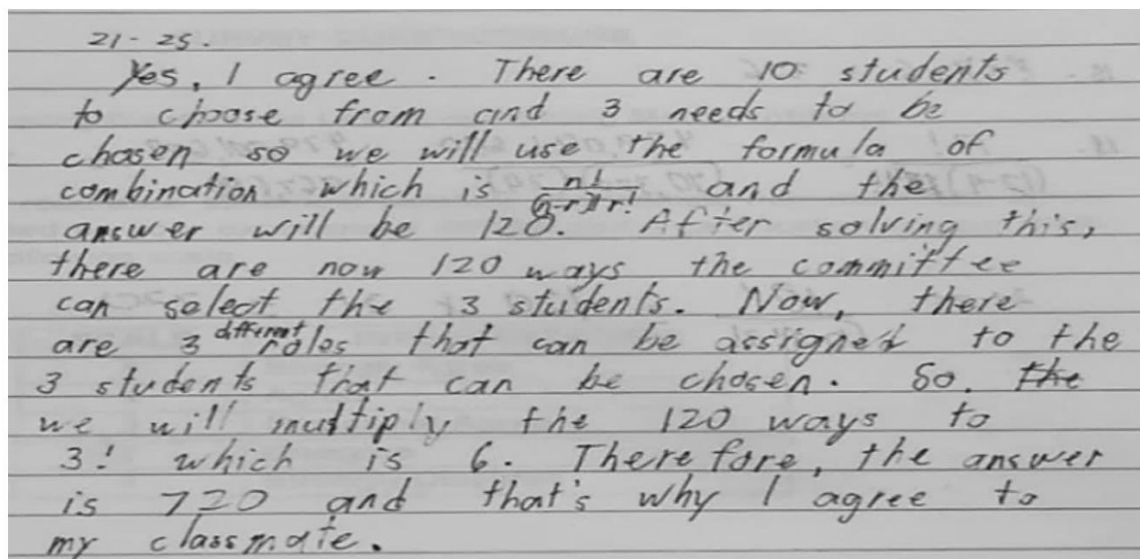 21 - 25.
Yes, I agree. There are 10 students
to choose from and 3 needs to be
chosen so we will use the formula of
combination which is n!/(n-r)!r! and the
answer will be 120. After solving this,
there are now 120 ways the committee
can select the 3 students. Now, there
are 3 different roles that can be assigned to the
3 students that can be chosen. So, the
we will multiply the 120 ways to
3! which is 6. Therefore, the answer
is 720 and that's why I agree to
my classmate.